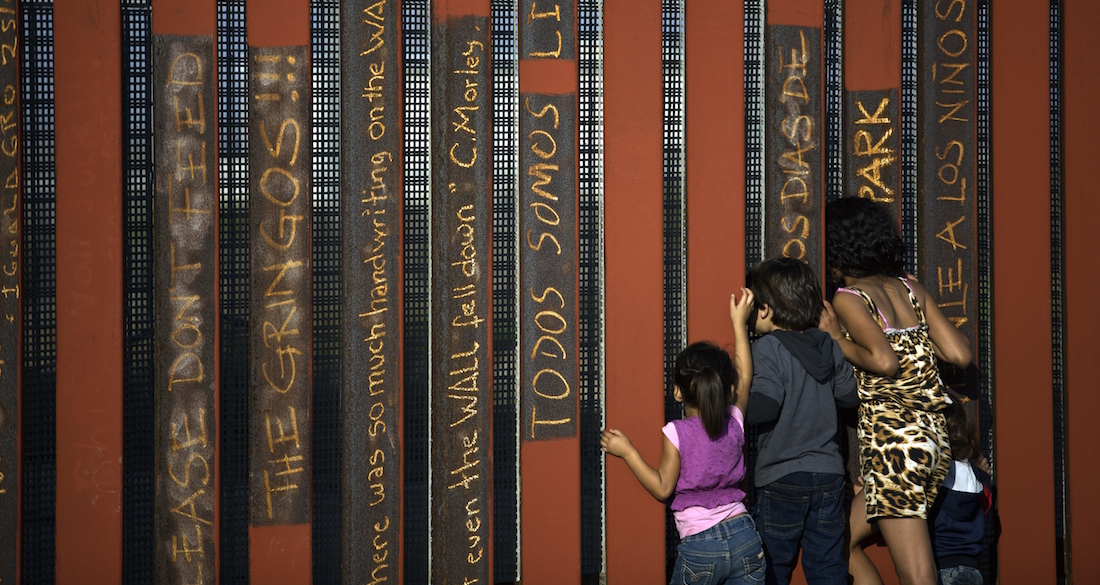 IGUALDGRO 25
EASE DON'T FEED
THE GRINGOS!!!
here was so much handwriting on the WA
even the WALL fell down" C.Morley.
TODOS SOMOS LI
OS DIAS DE
PARK
NIE A LOS NIÑOS